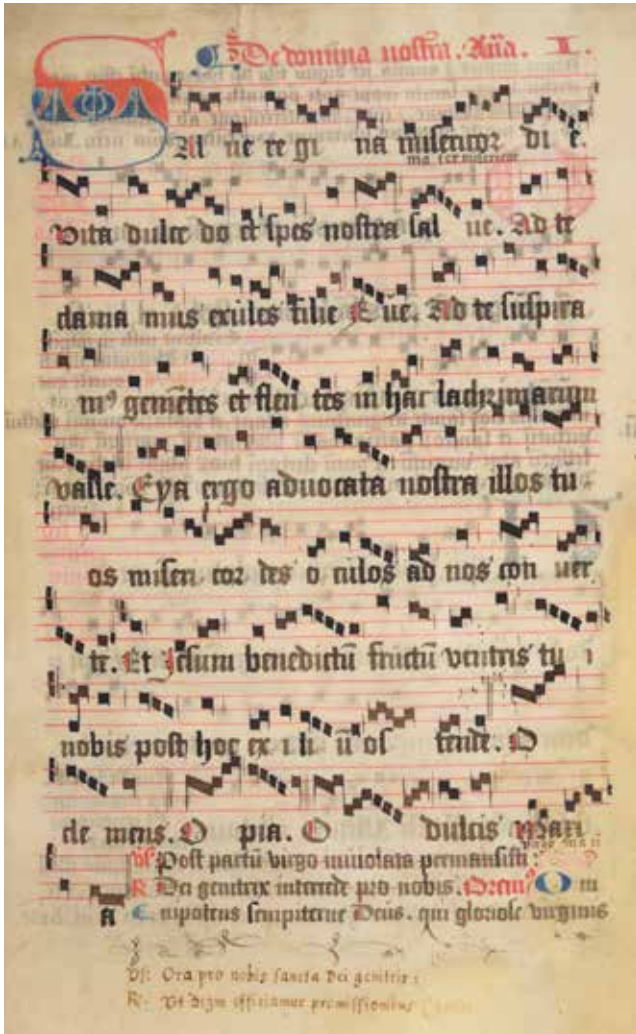 De domina nostra. Aña.
SAl ue re gi na misericor di e.
ma ter misericor
Vita dulce do et spes nostra sal ue. Ad te
clama mus exules filie Eue. Ad te suspira
mꝰ gemẽtes et flen tes in hac lachrimarum
valle. Eya ergo aduocata nostra illos tu
os miseri cor des o culos ad nos con uer
te. Et Jesum benedictũ fructũ ventris tu i
nobis post hoc ex i li ũ os tende. O
cle mens. O pia. O dulcis Mari
virgo mari
℣ Post partũ virgo inuiolata permansisti:
℟ Dei genitrix intercede pro nobis. Oremꝰ Om
a
nipotens sempiterne Deus. qui gloriose virginis
℣: Ora pro nobis sancta dei genitrix:
℟. Vt digni efficiamur promissionibus